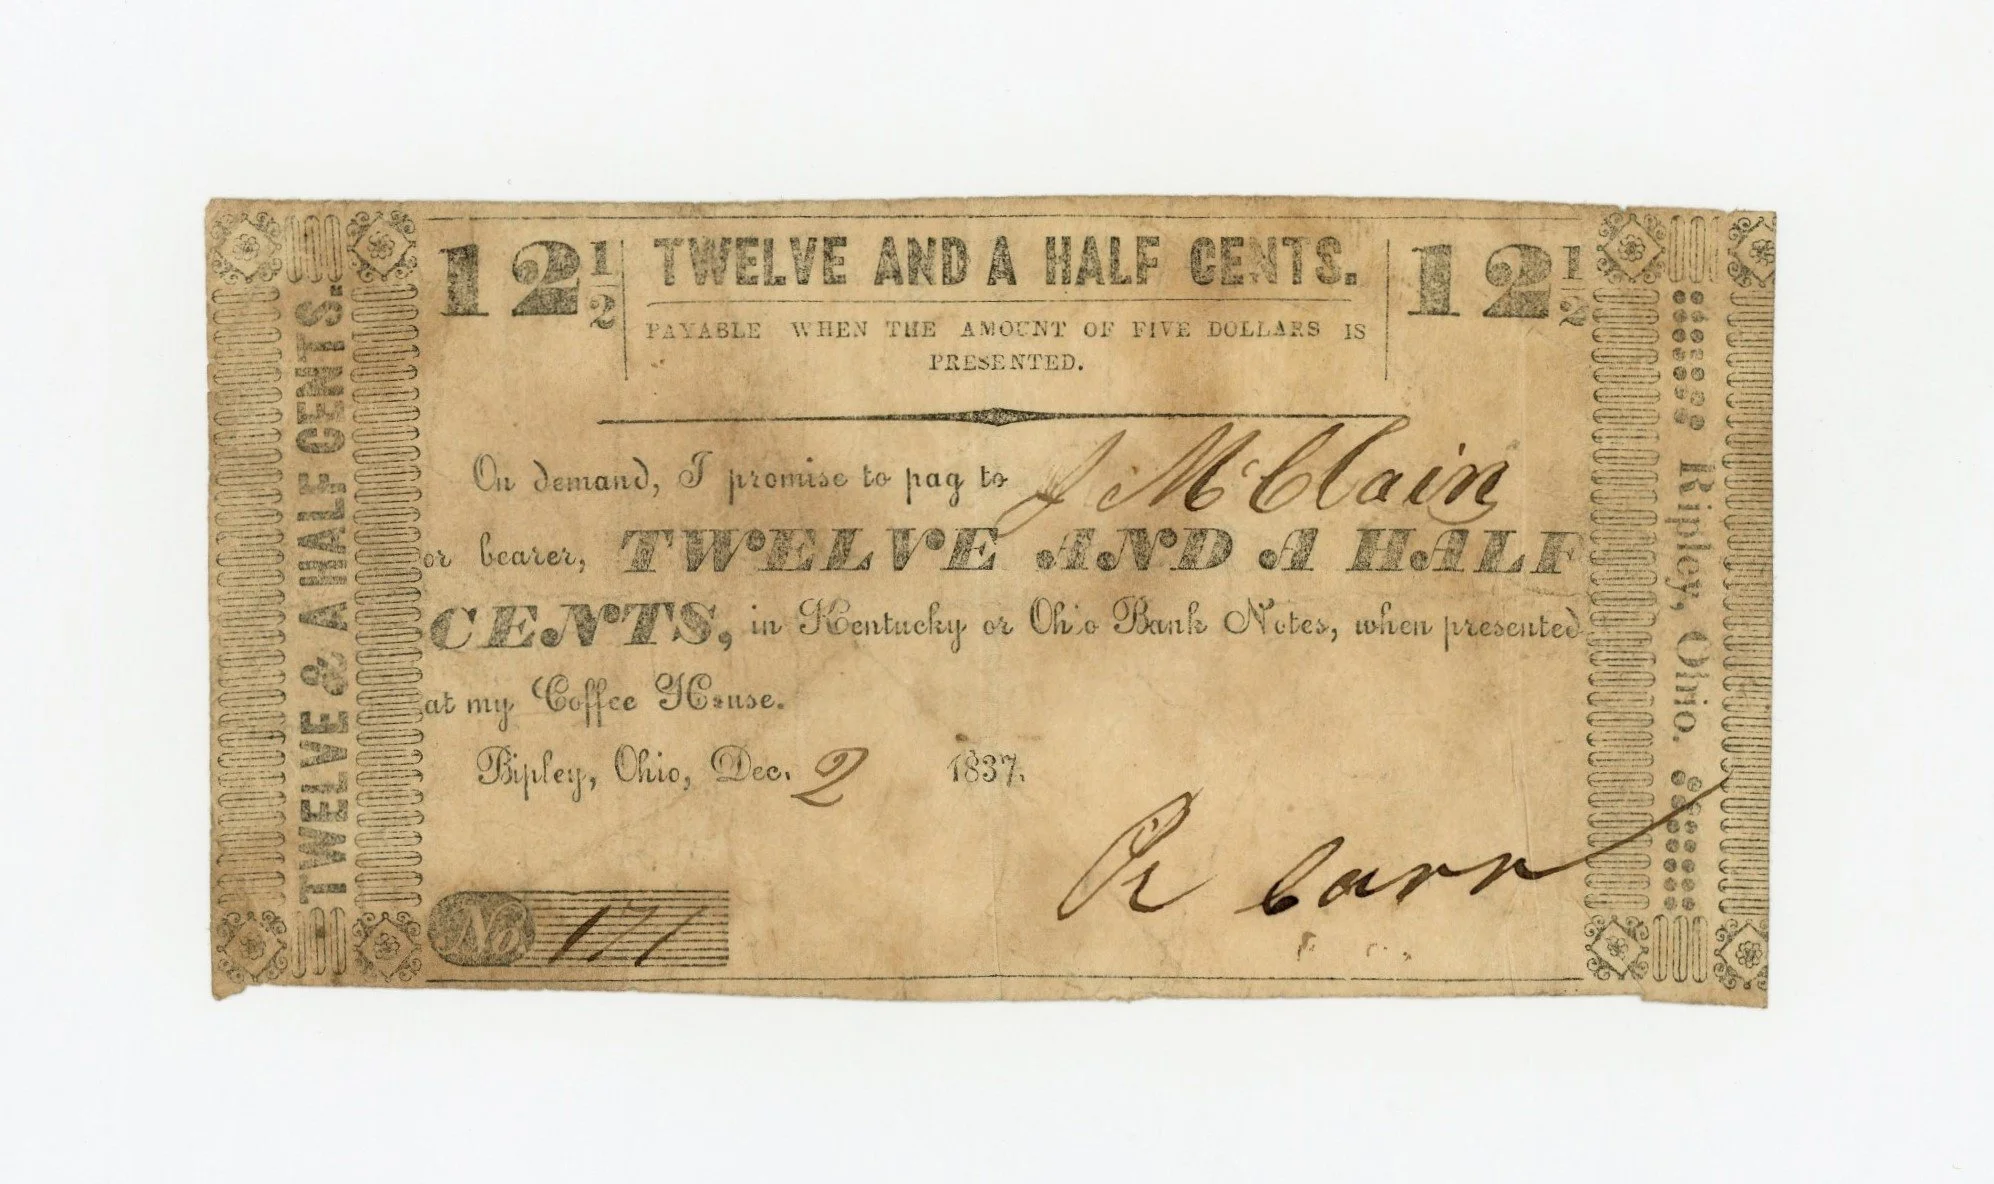 TWELVE & A HALF CENTS.
12 1/2
TWELVE AND A HALF CENTS.
12 1/2
PAYABLE WHEN THE AMOUNT OF FIVE DOLLARS IS
PRESENTED.
On demand, I promise to pay to J McClain
or bearer, TWELVE AND A HALF
CENTS, in Kentucky or Ohio Bank Notes, when presented
at my Coffee House.
Ripley, Ohio, Dec. 2 1837.
R Carr
No 171
Ripley, Ohio.